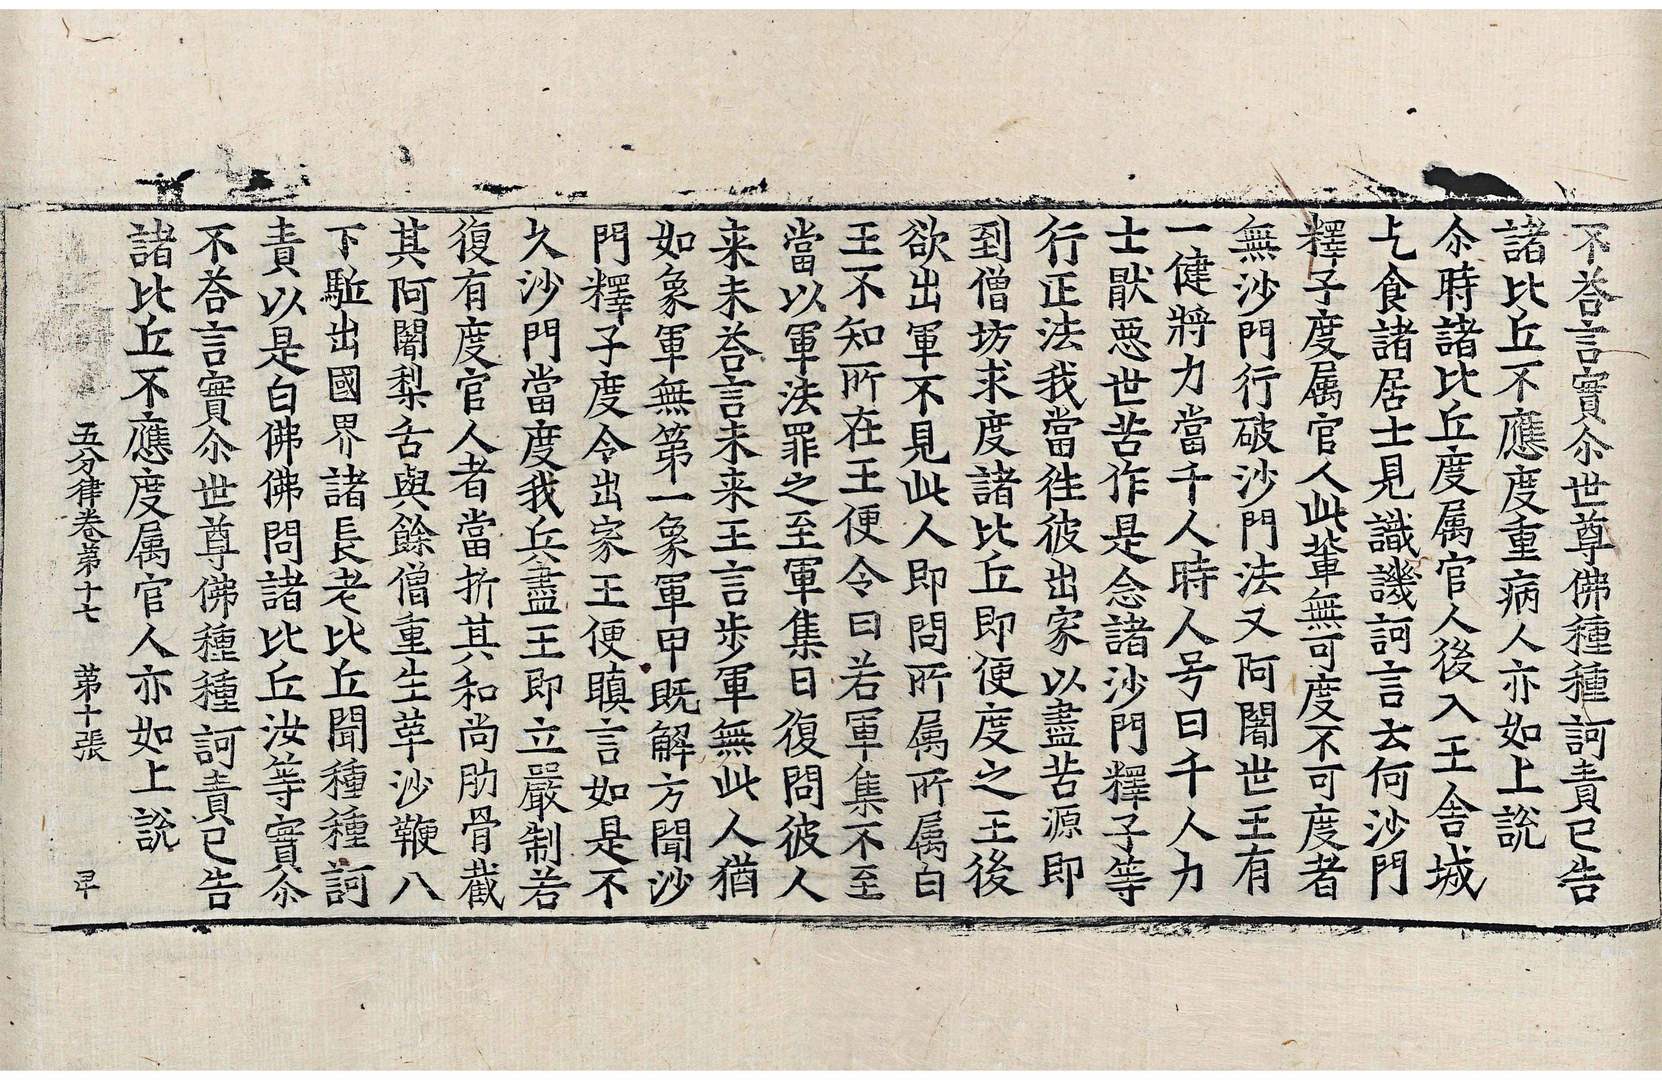 不荅言實尒世尊佛種種訶責已告
諸比丘不應度重病人亦如上說
尒時諸比丘度属官人後入王舍城
乞食諸居士見譏訶言云何沙門
釋子度属官人此輩無可度不可度者
無沙門行破沙門法又阿闍世王有
一健將力當千人時人号曰千人力
士猒惡世苦作是念諸沙門釋子等
行正法我當徃彼出家以盡苦源即
到僧坊求度諸比丘即便度之王後
欲出軍不見此人即問所属所属白
王不知所在王便令曰若軍集不至
當以軍法罪之至軍集日復問彼人
来未荅言未来王言步軍無此人猶
如象軍無第一象軍甲既解方聞沙
門釋子度令出家王便瞋言如是不
久沙門當度我兵盡王即立嚴制若
復有度官人者當折其和尚肋骨截
其阿闍梨舌與餘僧重生革沙鞭八
下駈出國界諸長老比丘聞種種訶
責以是白佛佛問諸比丘汝等實尒
不荅言實尒世尊佛種種訶責已告
諸比丘不應度属官人亦如上說
五分律卷第十七 第十張